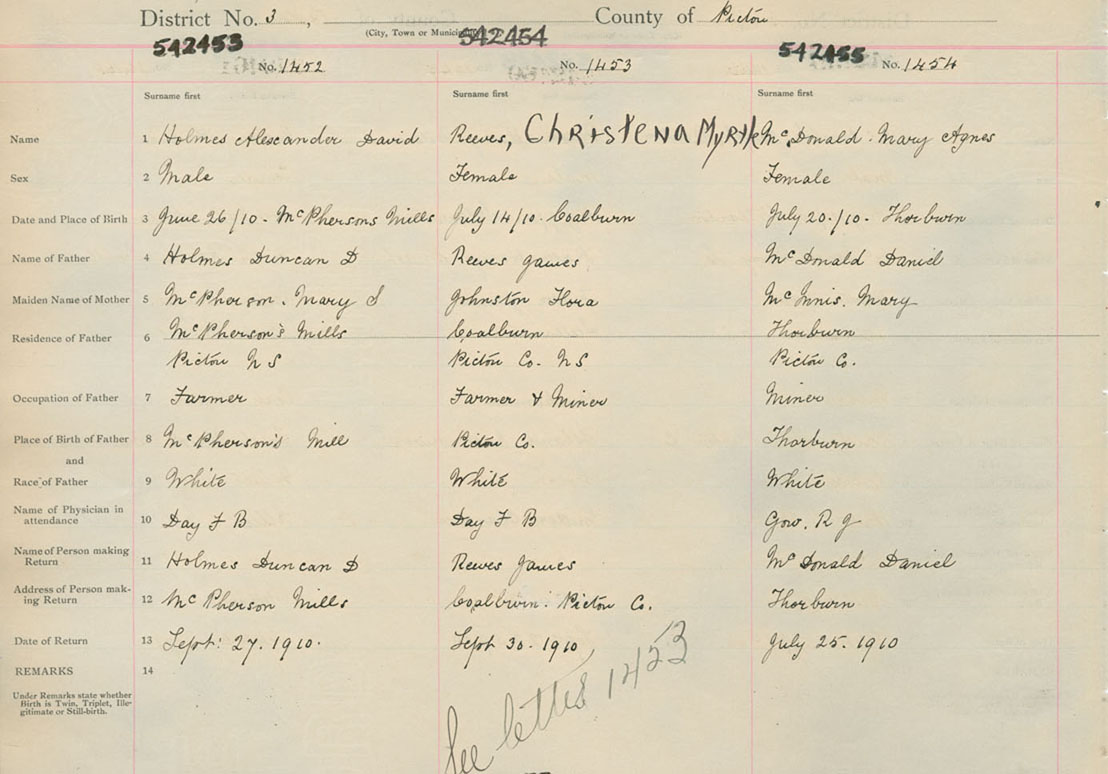 District No. 3, County of Pictou
(City, Town or Municipality)
542453 542454 542455
No. 1452 No. 1453 No. 1454
Surname first Surname first Surname first
Name 1 Holmes Alexander David Reeves, Christena Myrtle McDonald. Mary Agnes
Sex 2 Male Female Female
Date and Place of Birth 3 June 26/10 - McPhersons Mills July 14/10. Coalburn July 20./10. Thorburn
Name of Father 4 Holmes Duncan D Reeves James McDonald Daniel
Maiden Name of Mother 5 McPherson. Mary S Johnston Flora McInnis. Mary
Residence of Father 6 McPherson's Mills Coalburn Thorburn
Pictou N S Pictou Co. N S Pictou Co.
Occupation of Father 7 Farmer Farmer & Miner Miner
Place of Birth of Father 8 McPherson's Mill Pictou Co. Thorburn
and
Race of Father 9 White White White
Name of Physician in attendance 10 Day F B Day F B Gow. R J
Name of Person making Return 11 Holmes Duncan D Reeves James McDonald Daniel
Address of Person making Return 12 McPherson Mills Coalburn. Pictou Co. Thorburn
Date of Return 13 Sept: 27. 1910. Sept 30. 1910 July 25. 1910
REMARKS 14
Under Remarks state whether
Birth is Twin, Triplet, Ille-
gitimate or Still-birth.
See letter 1453